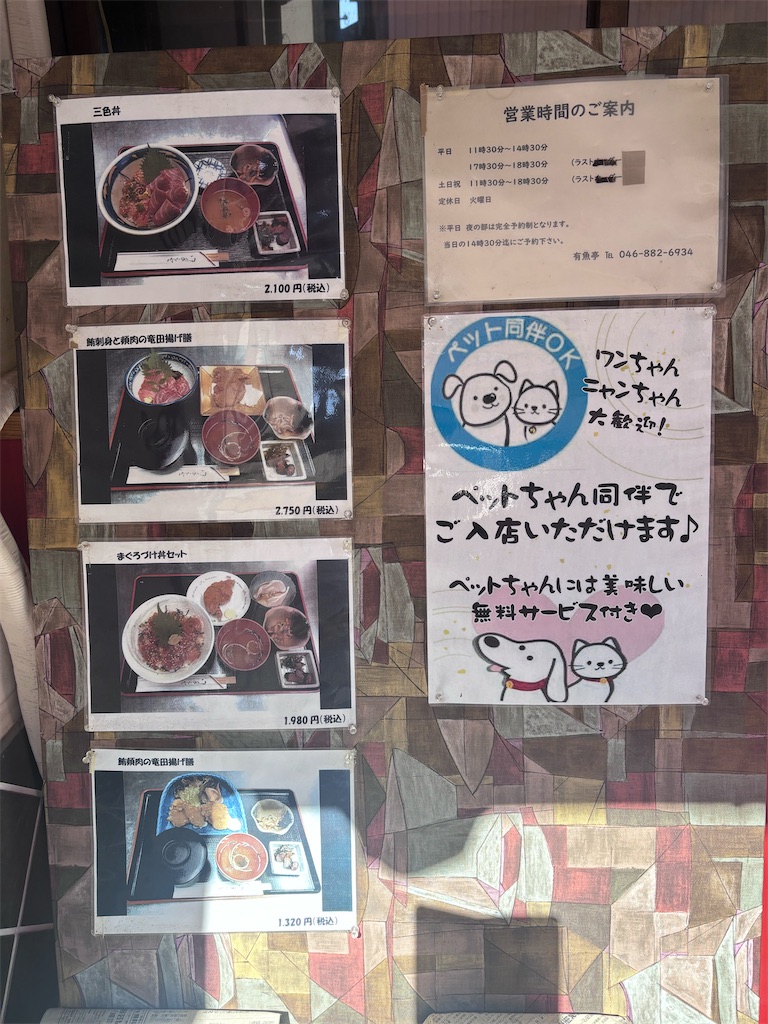 三色丼
2.100円(税込)
鮪刺身と頬肉の竜田揚げ膳
2.750円(税込)
まぐろづけ丼セット
1.980円(税込)
鮪頬肉の竜田揚げ膳
1.320円(税込)
営業時間のご案内
平日 11時30分～14時30分
17時30分～18時30分 (ラスト
土日祝 11時30分～18時30分 (ラスト
定休日 火曜日
※平日 夜の部は完全予約制となります。
当日の14時30分迄にご予約下さい。
有魚亭 ℡ 046-882-6934
ペット同伴OK
ワンちゃん
ニャンちゃん
大歓迎!
ペットちゃん同伴で
ご入店いただけます♪
ペットちゃんには美味しい
無料サービス付き♥